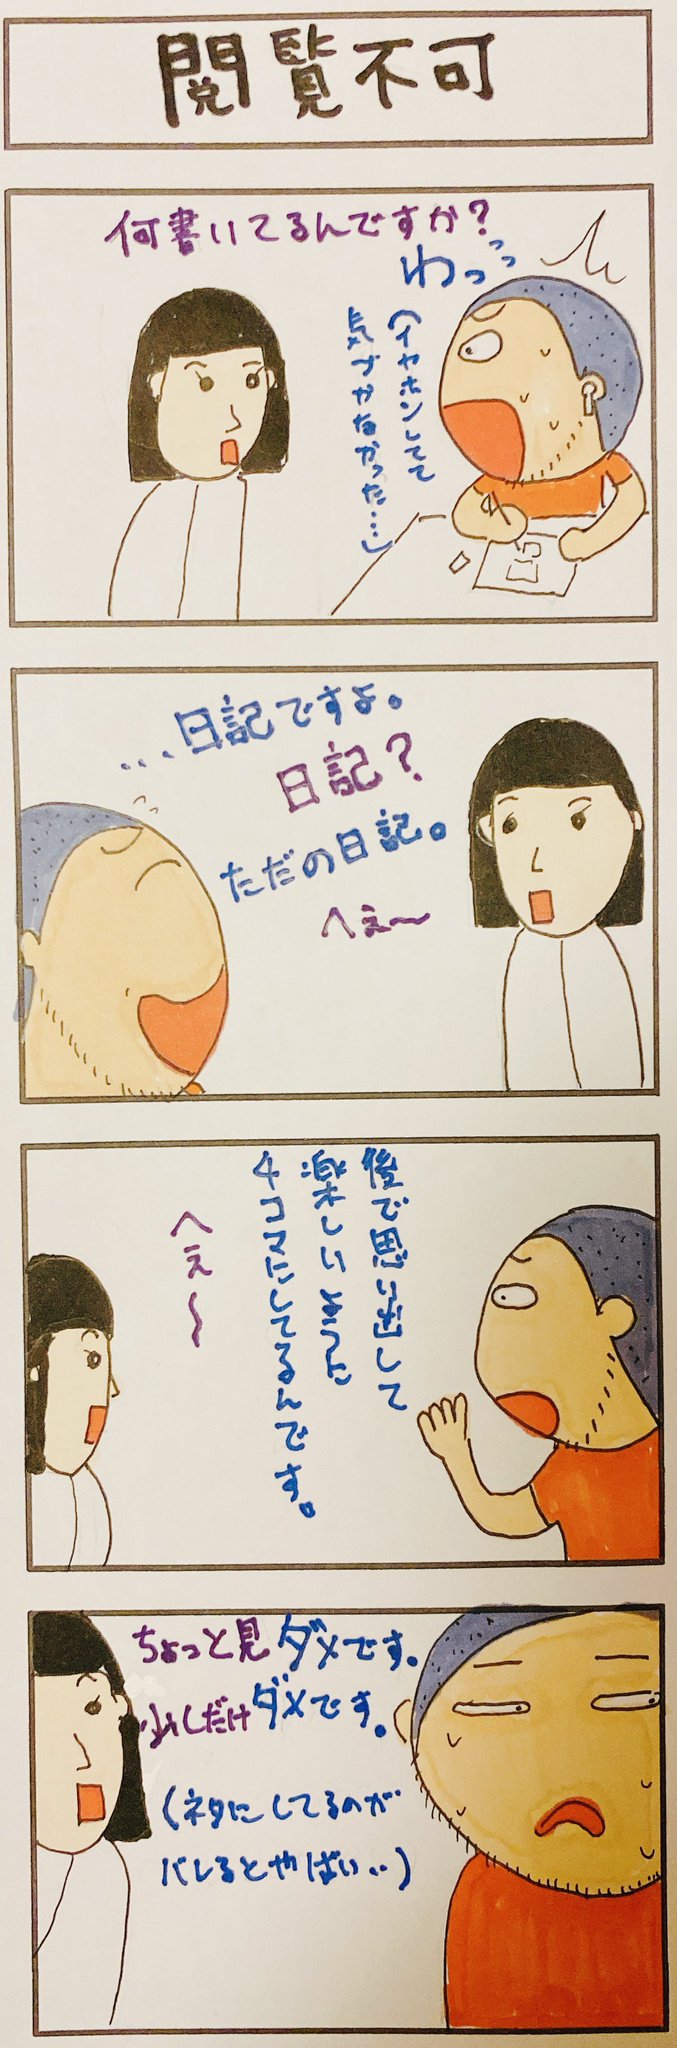 閲覧不可
何書いてるんですか?
わっっっ
(イヤホンしてて
気づかなかった…)
…日記ですよ。
日記?
ただの日記。
へぇ〜
後で思い出して
楽しいように
4コマにしてるんです。
へぇ〜
ちょっと見ダメです。
少しだけダメです。
(ネタにしてるのが
バレるとやばい..)